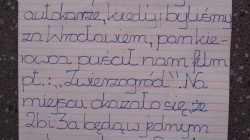 autokarze, kiedy byliśmy
za Wrocławiem, pan kie-
rowca puścił nam film
pt.: „Zwierzogród". Na
miejscu okazało się, że
2b i 3a będą w jednym